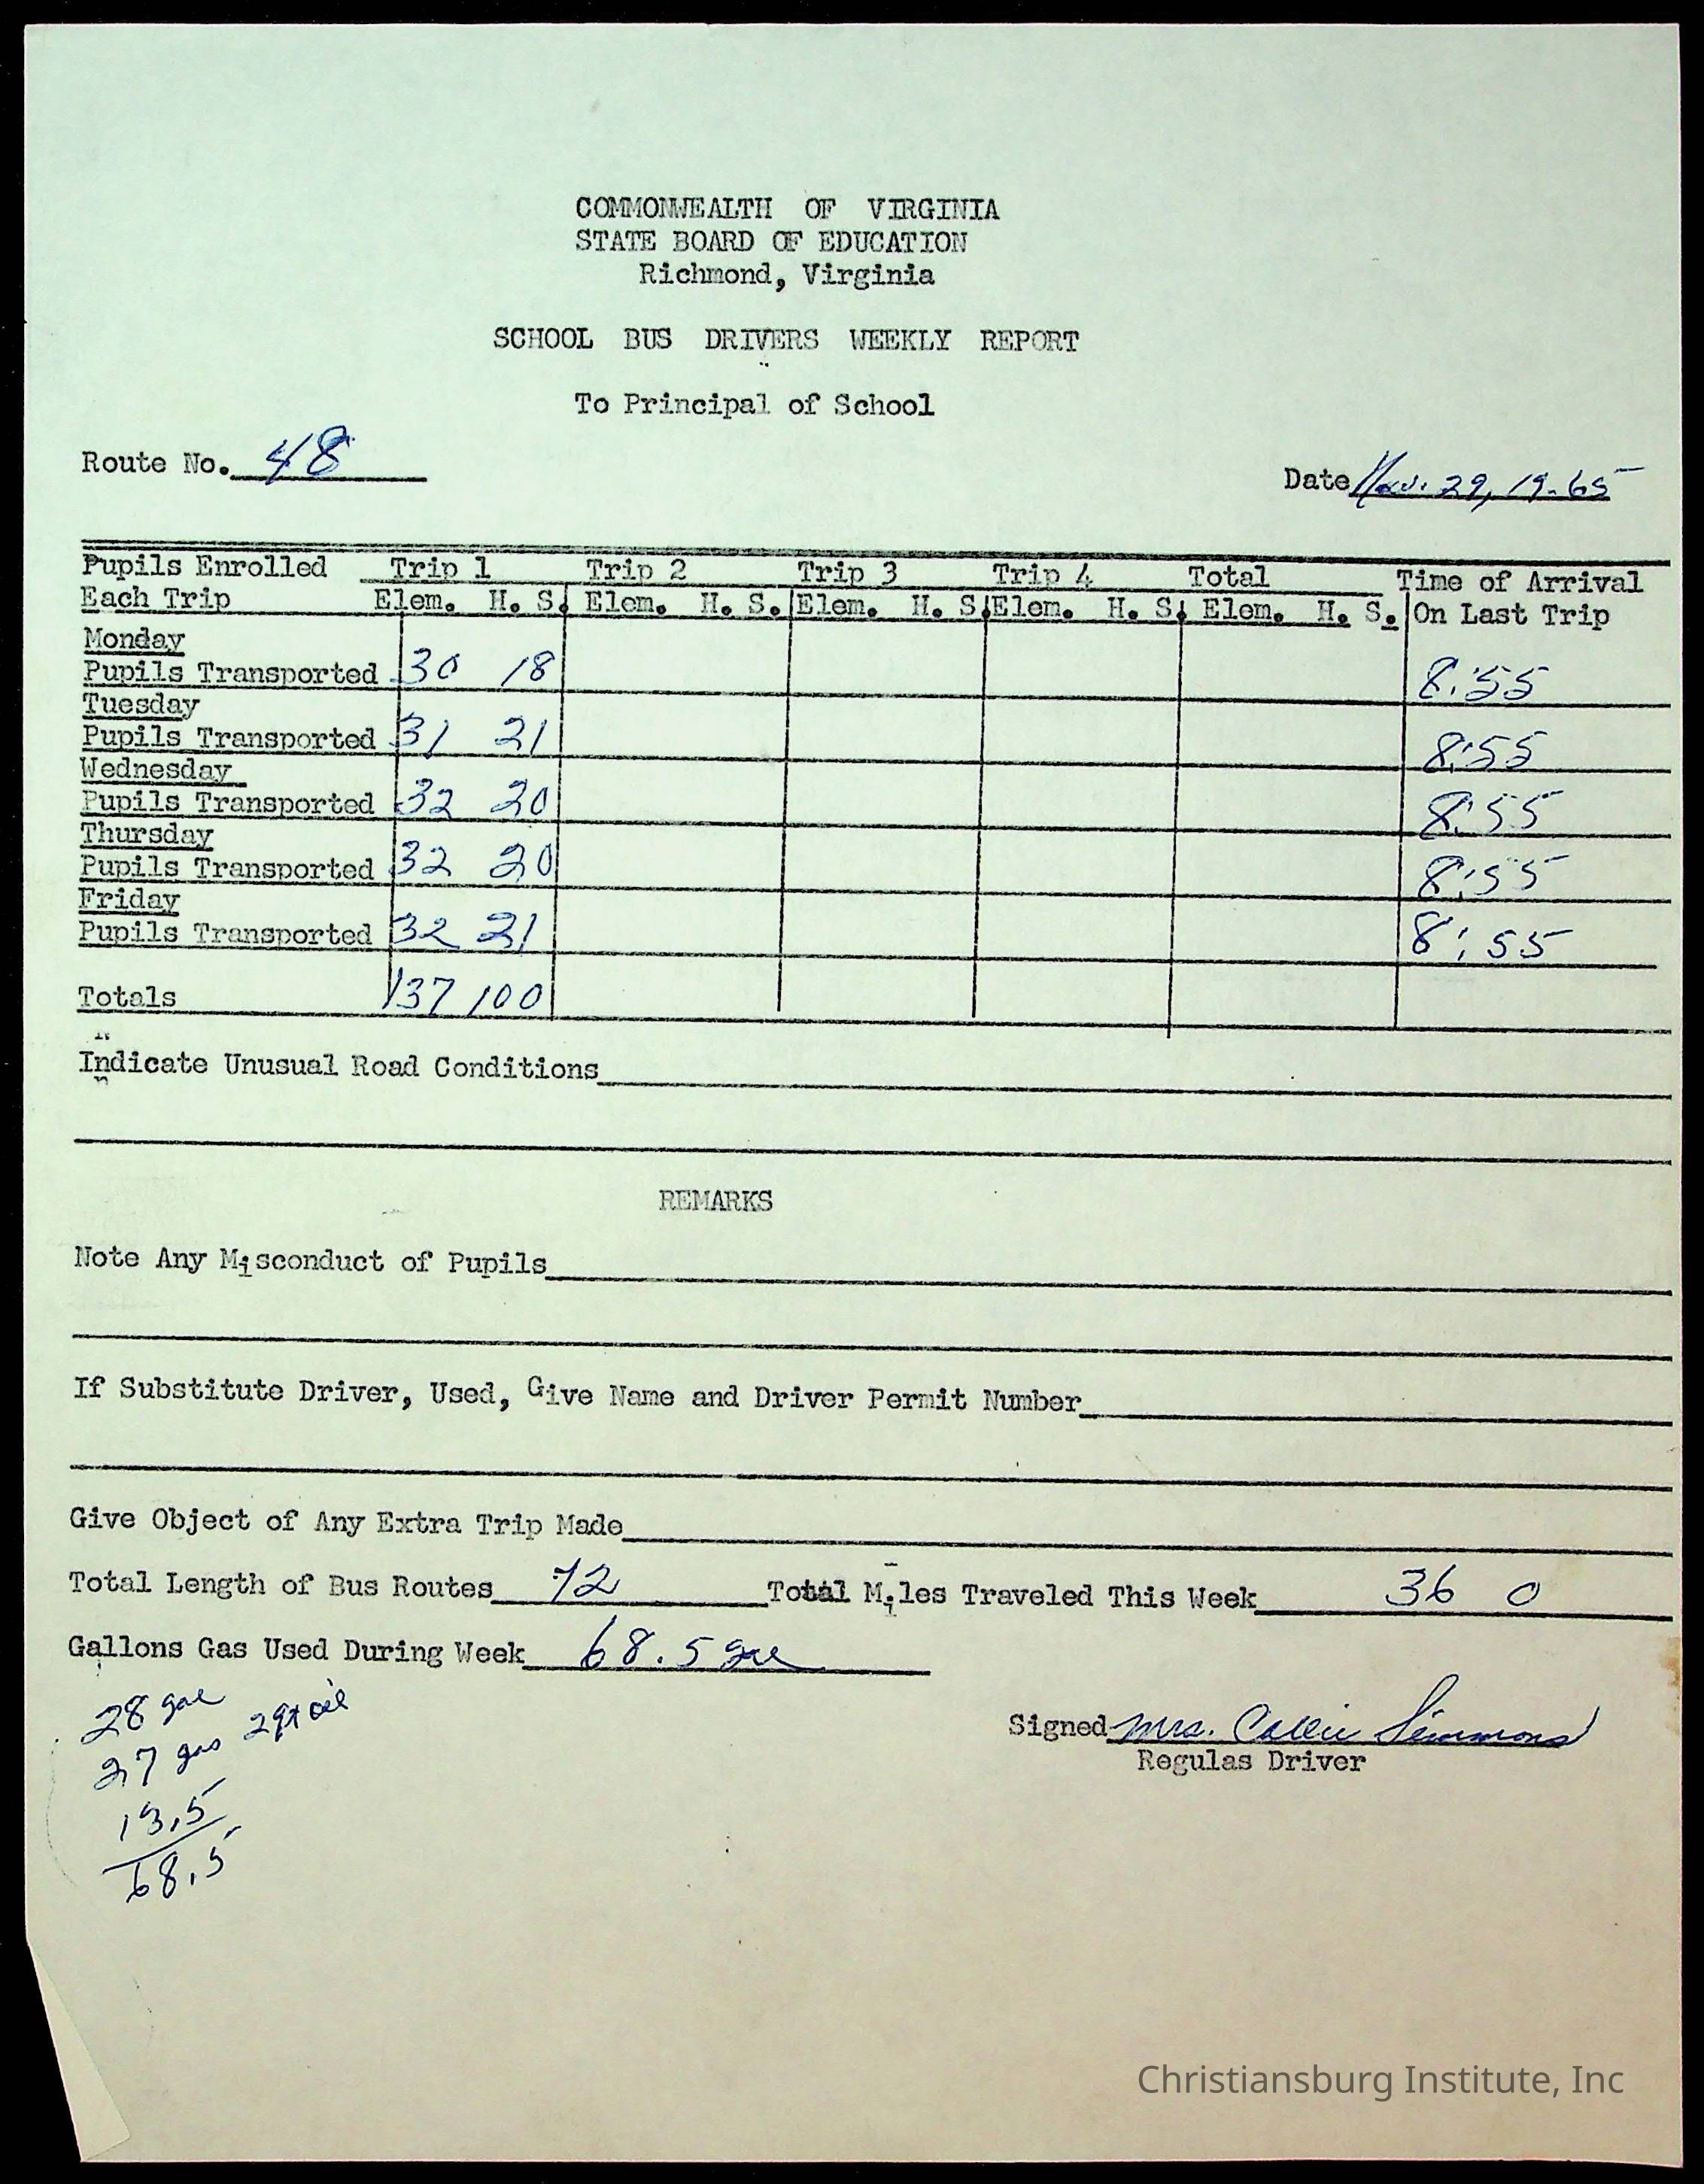 COMMONWEALTH OF VIRGINIA
STATE BOARD OF EDUCATION
Richmond, Virginia
SCHOOL BUS DRIVERS WEEKLY REPORT
To Principal of School
Route No. 48
Date Nov. 29, 19-65
Pupils Enrolled Trip 1 Trip 2 Trip 3 Trip 4 Total Time of Arrival
Each Trip Elem. H. S. Elem. H. S. Elem. H. S. Elem. H. S. Elem. H. S. On Last Trip
Monday
Pupils Transported 30 18 8:55
Tuesday
Pupils Transported 31 21 8:55
Wednesday
Pupils Transported 32 20 8:55
Thursday
Pupils Transported 32 20 8:55
Friday
Pupils Transported 32 21 8:55
Totals 137 100
Indicate Unusual Road Conditions
REMARKS
Note Any Misconduct of Pupils
If Substitute Driver, Used, Give Name and Driver Permit Number
Give Object of Any Extra Trip Made
Total Length of Bus Routes 72 Total Miles Traveled This Week 36 0
Gallons Gas Used During Week 68.5 gal
28 gal
27 gas 2qt oil
13.5
68.5
Signed Mrs. Callie Simmons
Regulas Driver
Christiansburg Institute, Inc